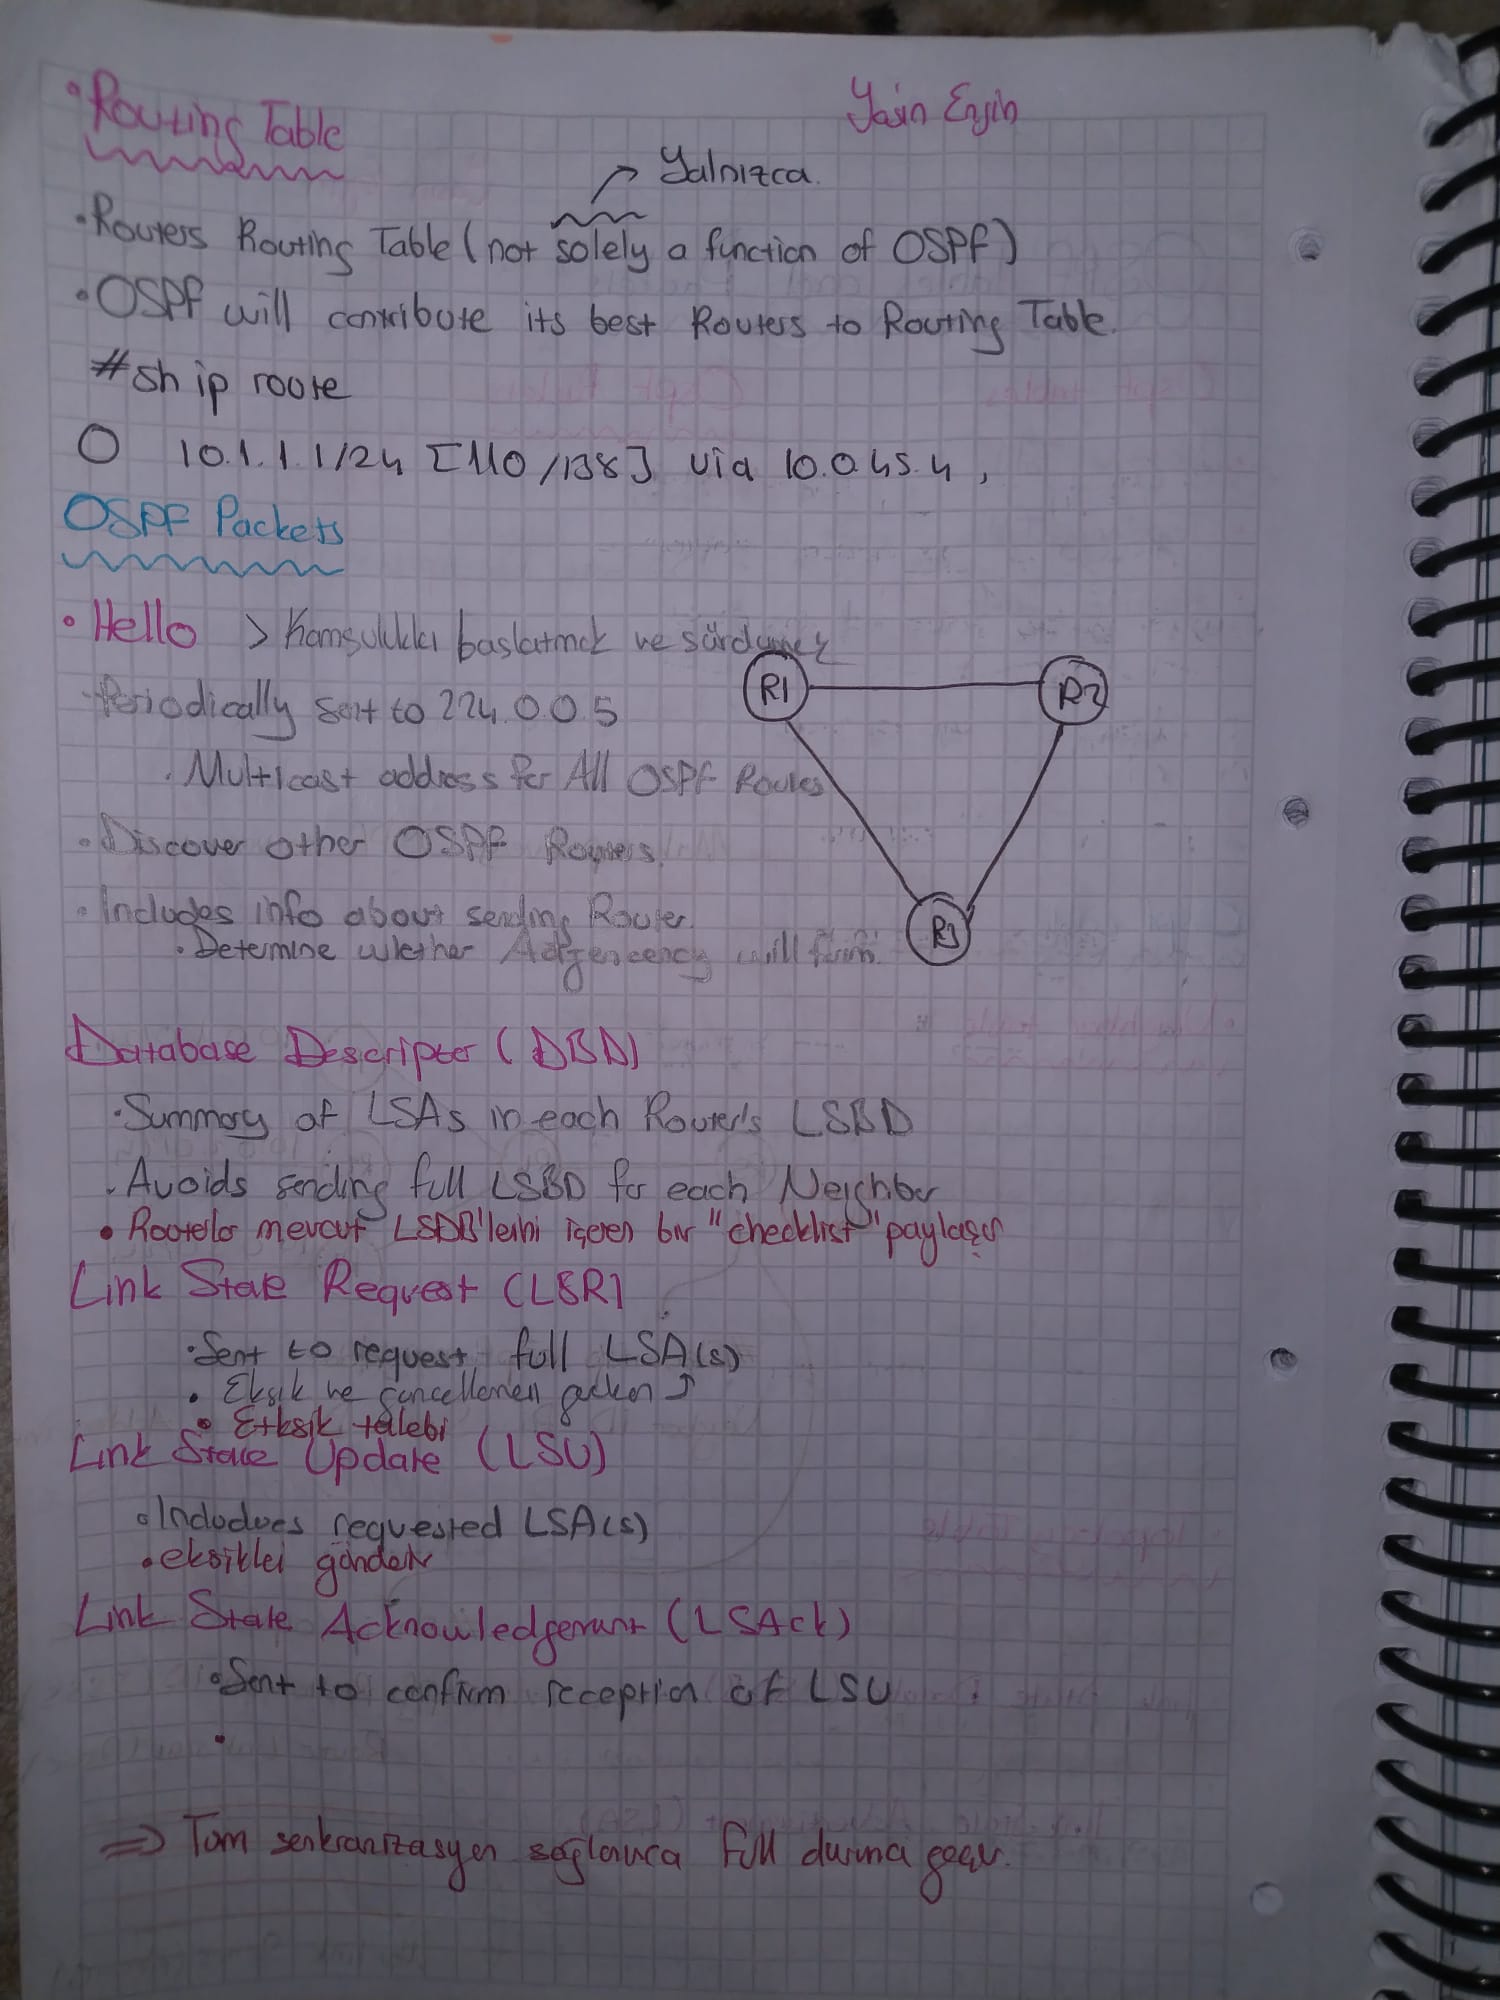 • Routing Table
Yasin Engin
Yalnızca.
• Routers Routing Table (not solely a function of OSPF)
• OSPF will contribute its best Routers to Routing Table.
# sh ip route
O 10.1.1.1/24 [110/138] via 10.0.45.4,
OSPF Packets
• Hello > Komşulukları başlatmak ve sürdürmek
R1
R2
- Periodically sent to 224.0.0.5
. Multicast address for All OSPF Routes
• Discover other OSPF Routers.
• Includes info about sending Router.
• Determine whether Adjencency will form.
R3
Database Descripter (DBD)
• Summary of LSAs in each Router's LSBD
. Avoids sending full LSBD for each Neighbor
• Routerlar mevcut LSDB'lerini içeren bir "checklist" paylaşır
Link State Request (LSR)
• Sent to request full LSA(s)
• Eksik ve güncellenen
• Etksik talebi
Link State Update (LSU)
• Includues requested LSA(s)
• eksiklei gönderir
Link State Acknowledgemant (LSAck)
• Sent to confirm reception of LSU
•
⇒ Tam senkranizasyon sağlanıca Full duruma geçer.